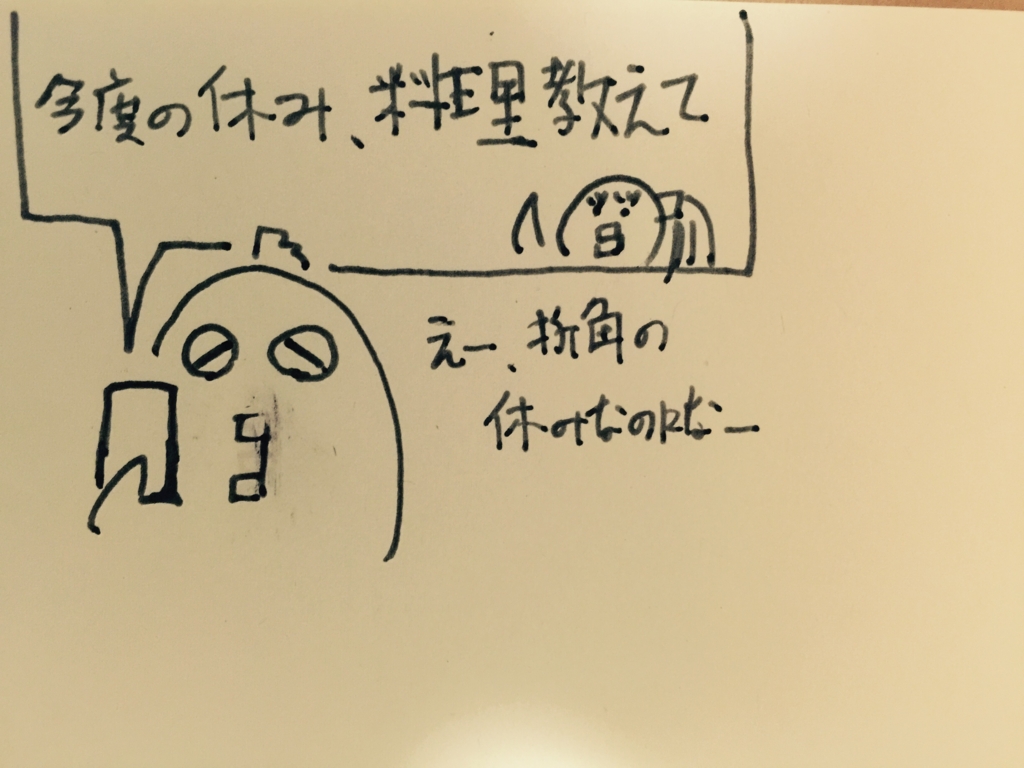 今度の休み、料理教えて
えー、折角の
休みなのになー